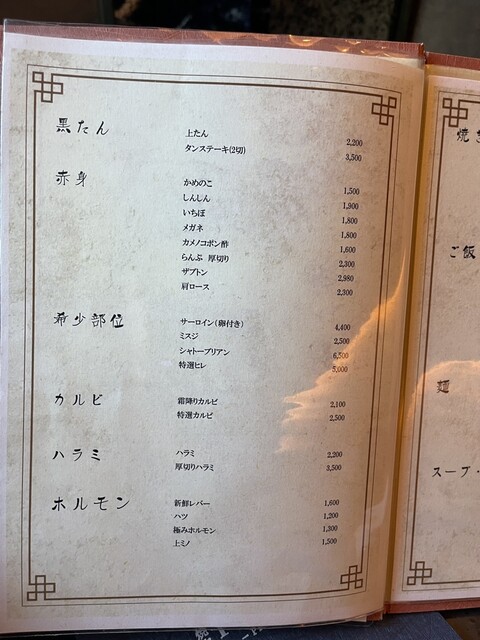 黒たん
上たん 2,200
タンステーキ(2切) 3,500
赤身
かめのこ 1,500
しんしん 1,900
いちぼ 1,800
メガネ 1,800
カメノコポン酢 1,600
らんぷ 厚切り 2,300
ザブトン 2,980
肩ロース 2,300
希少部位
サーロイン(卵付き) 4,400
ミスジ 2,500
シャトーブリアン 6,500
特選ヒレ 5,000
カルビ
霜降りカルビ 2,100
特選カルビ 2,500
ハラミ
ハラミ 2,200
厚切りハラミ 3,500
ホルモン
新鮮レバー 1,600
ハツ 1,200
極みホルモン 1,200
上ミノ 1,500
焼き
ご飯
麺
スープ・